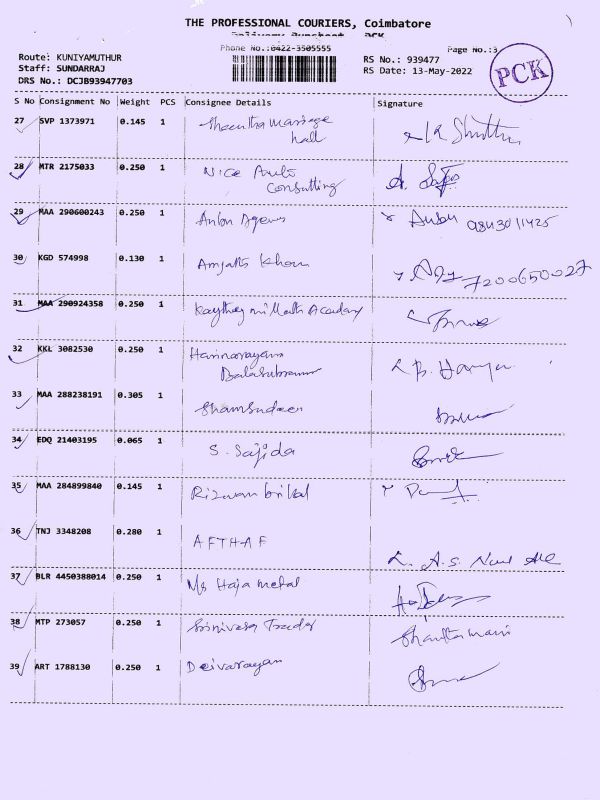 THE PROFESSIONAL COURIERS, Coimbatore
Delivery Runsheet - PCK
Phone No.:0422-3505555
Page No.:3
Route: KUNIYAMUTHUR
Staff: SUNDARRAJ
DRS No.: DCJB93947703
RS No.: 939477
RS Date: 13-May-2022
PCK
S No Consignment No Weight PCS Consignee Details Signature
27 SVP 1373971 0.145 1 Marriage
hall
28 MTR 2175033 0.250 1 Nice Auto
Consulting
29 MAA 290600243 0.250 1 Anbu 9843011425
30 KGD 574998 0.130 1 Khan 7200650027
31 MAA 290924358 0.250 1 Math Academy
32 KKL 3082530 0.250 1 Harinarayanan
Balasubramani
33 MAA 288238191 0.305 1 Shamsudeen
34 EDQ 21403195 0.065 1 S. Sajida
35 MAA 284899840 0.145 1 Rizwan
36 TNJ 3348208 0.280 1 AFTHAF
37 BLR 4450388014 0.250 1 M/s Haja metal
38 MTP 273057 0.250 1 Srinivasa Traders Shanthamani
39 ART 1788130 0.250 1 Deivarayan